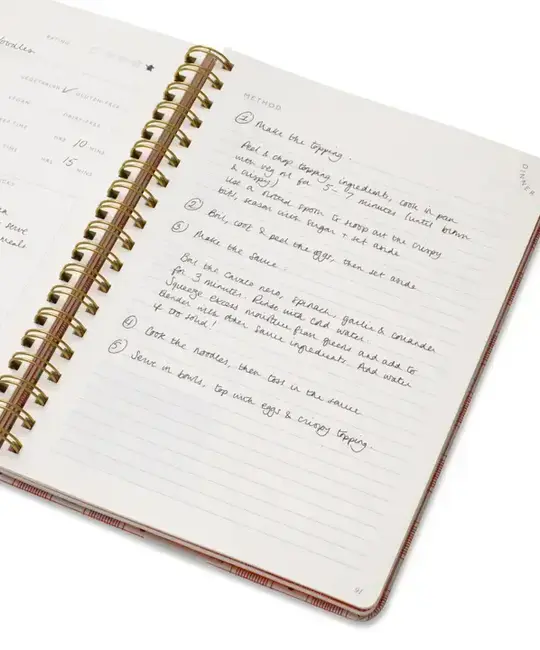 RATING
noodles
VEGETARIAN ✓ GLUTEN-FREE
VEGAN DAIRY-FREE
TIME HRS 10 MINS
TIME HRS 15 MINS
serve
meals
METHOD
DINNER
① Make the topping.
Peel & chop topping ingredients, cook in pan
with veg oil for 5-7 minutes (until brown
& crispy)
Use a slotted spoon to scoop out the crispy
bits, season with sugar & set aside
② Boil, cool & peel the eggs, then set aside
③ Make the sauce.
Boil the cavolo nero, spinach, garlic & coriander
for 3 minutes. Rinse with cold water.
Squeeze excess moisture from greens and add to
blender with other sauce ingredients. Add water
if too solid!
④ Cook the noodles, then toss in the sauce
⑤ Serve in bowls, top with eggs & crispy topping.